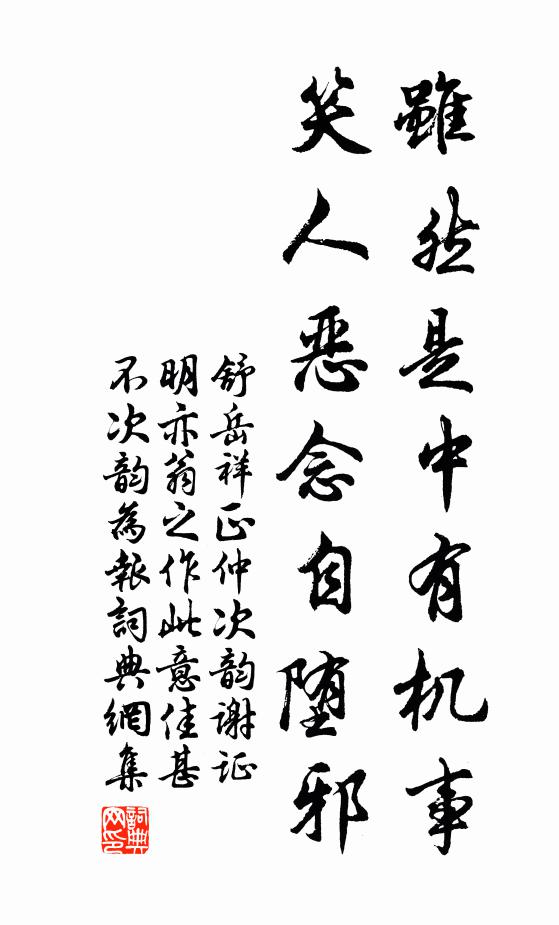 雖然是中有机事
笑人恶念自堕邪
舒岳祥正仲次韵谢証
明亦翁之作此意佳甚
不次韵為報詞典網集
詞典
网印